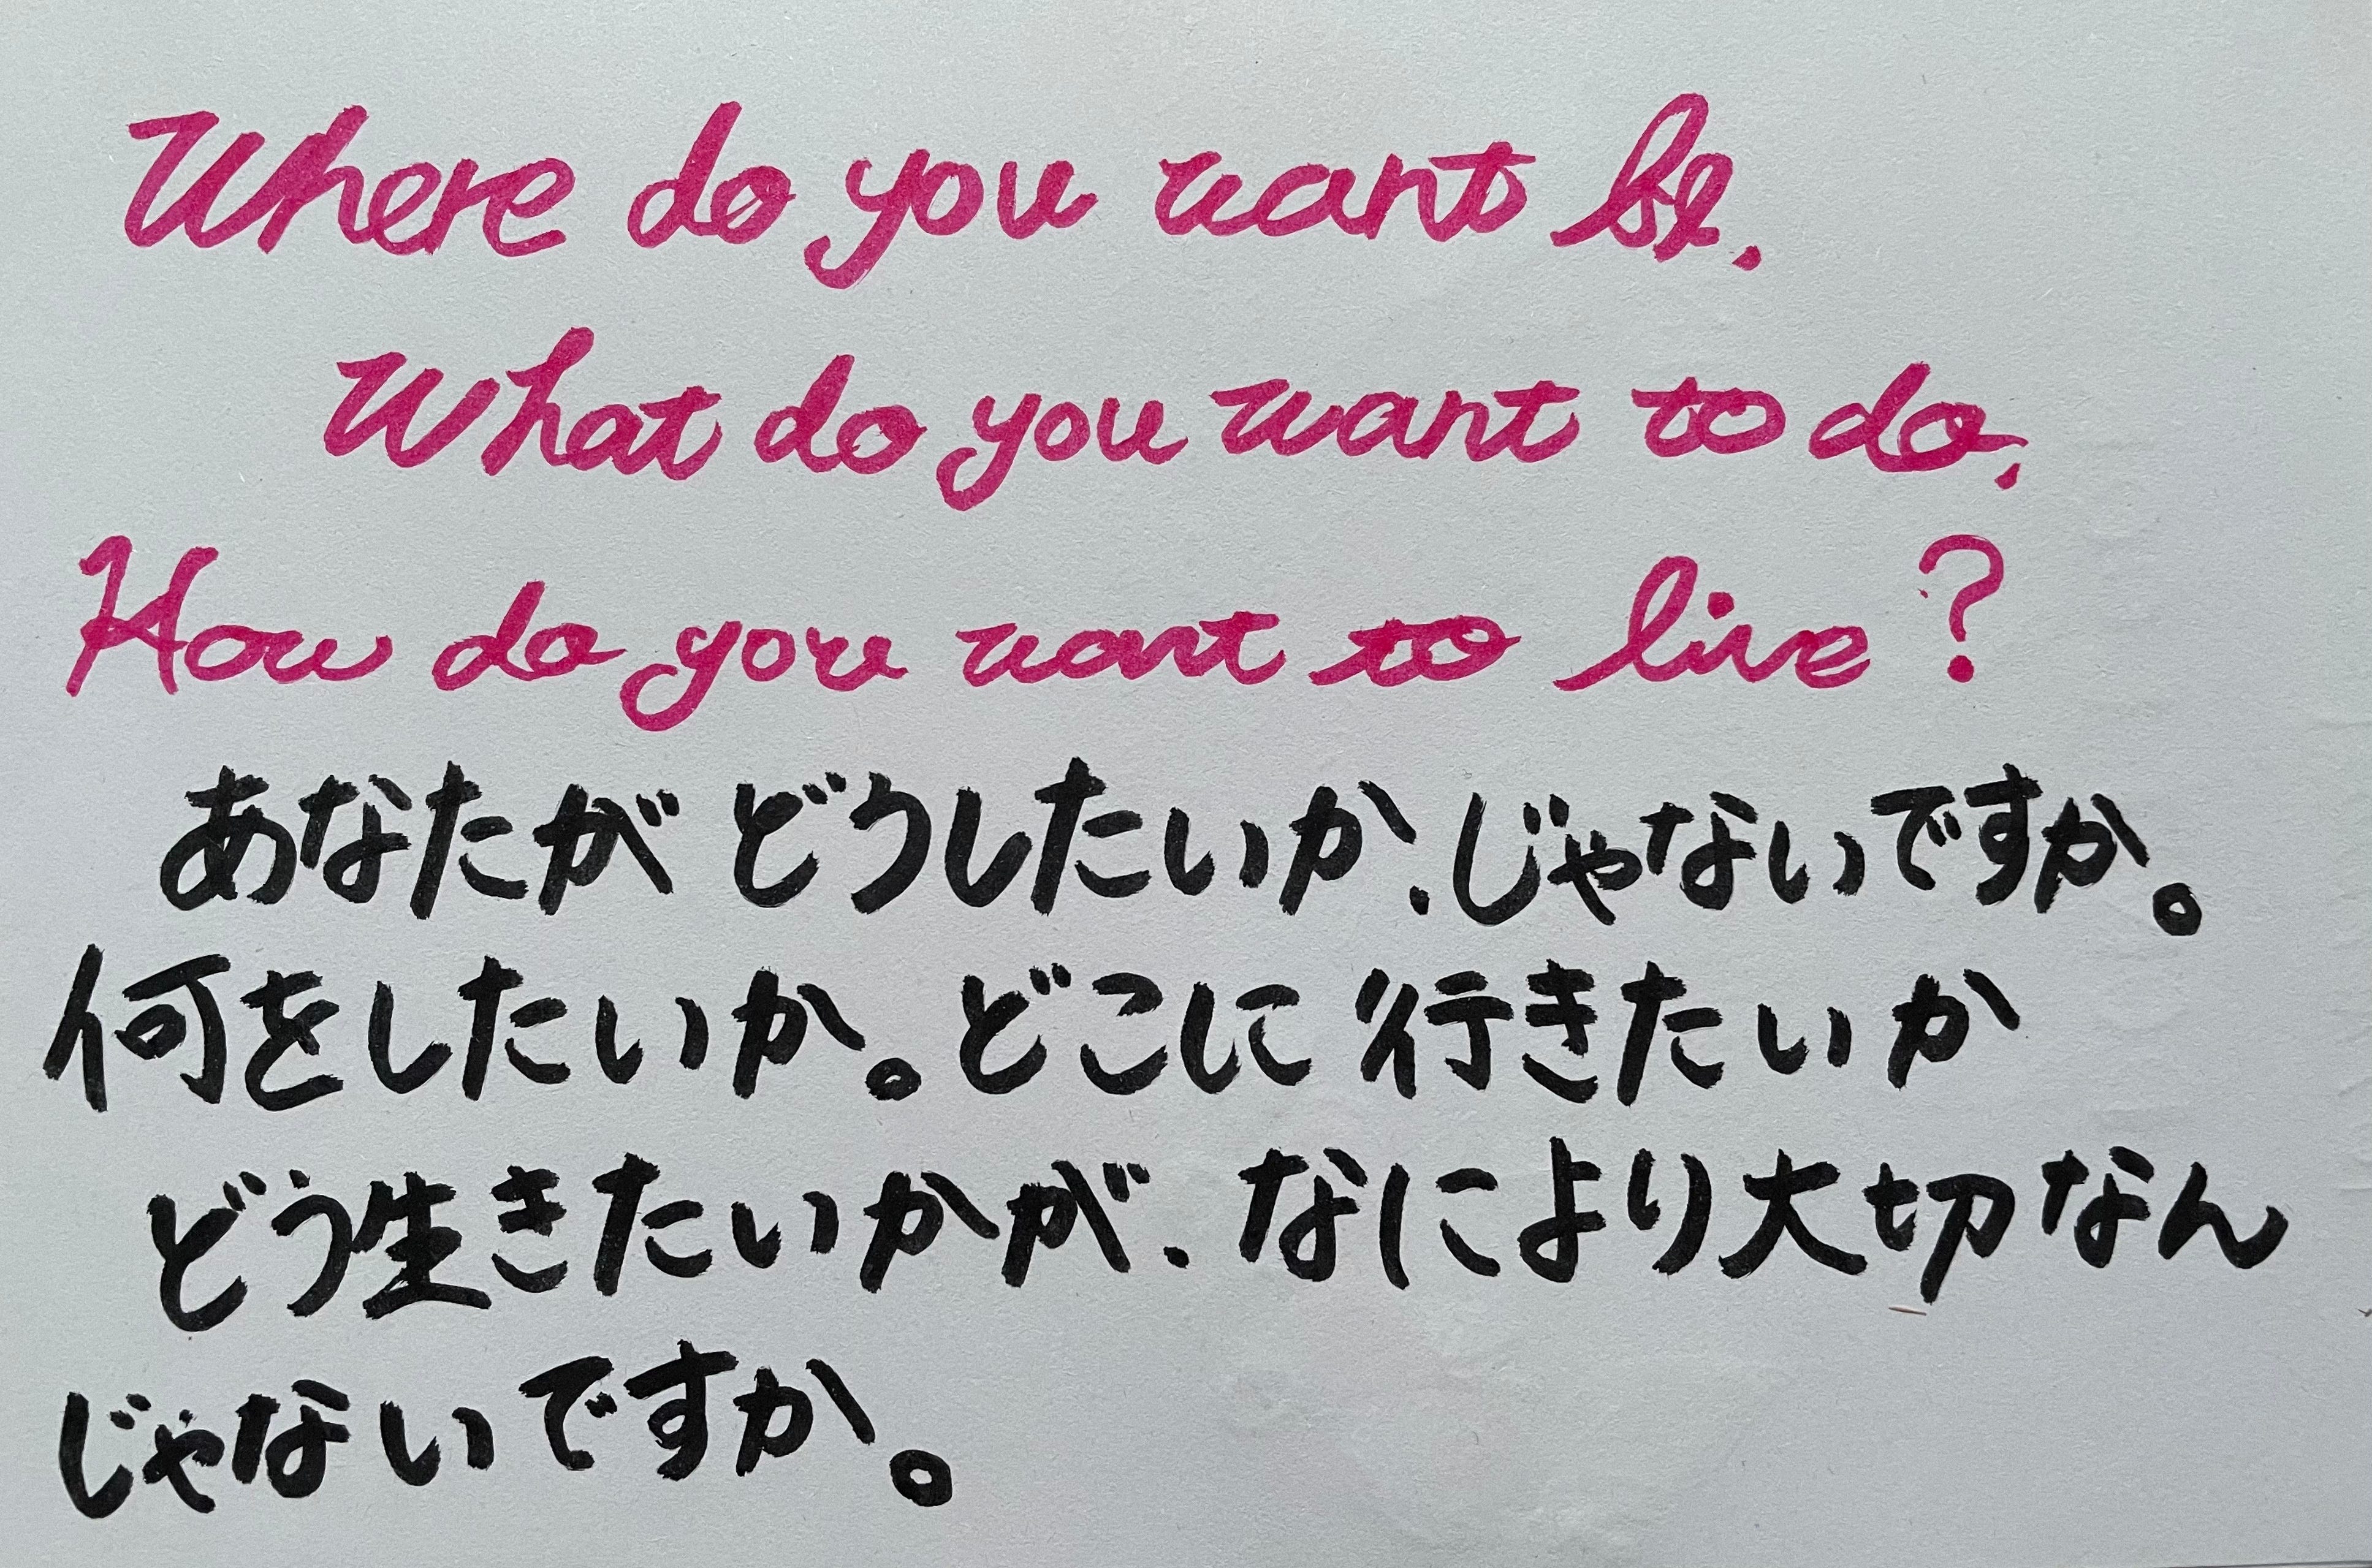 Where do you want be.
What do you want to do.
How do you want to live?
あなたがどうしたいか、じゃないですか。
何をしたいか。どこに行きたいか
どう生きたいかが、なにより大切なん
じゃないですか。